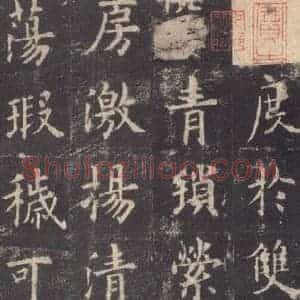 度於雙
青鎖縈
房激揚清
蕩瑕穢可
Shufaziliao.COM